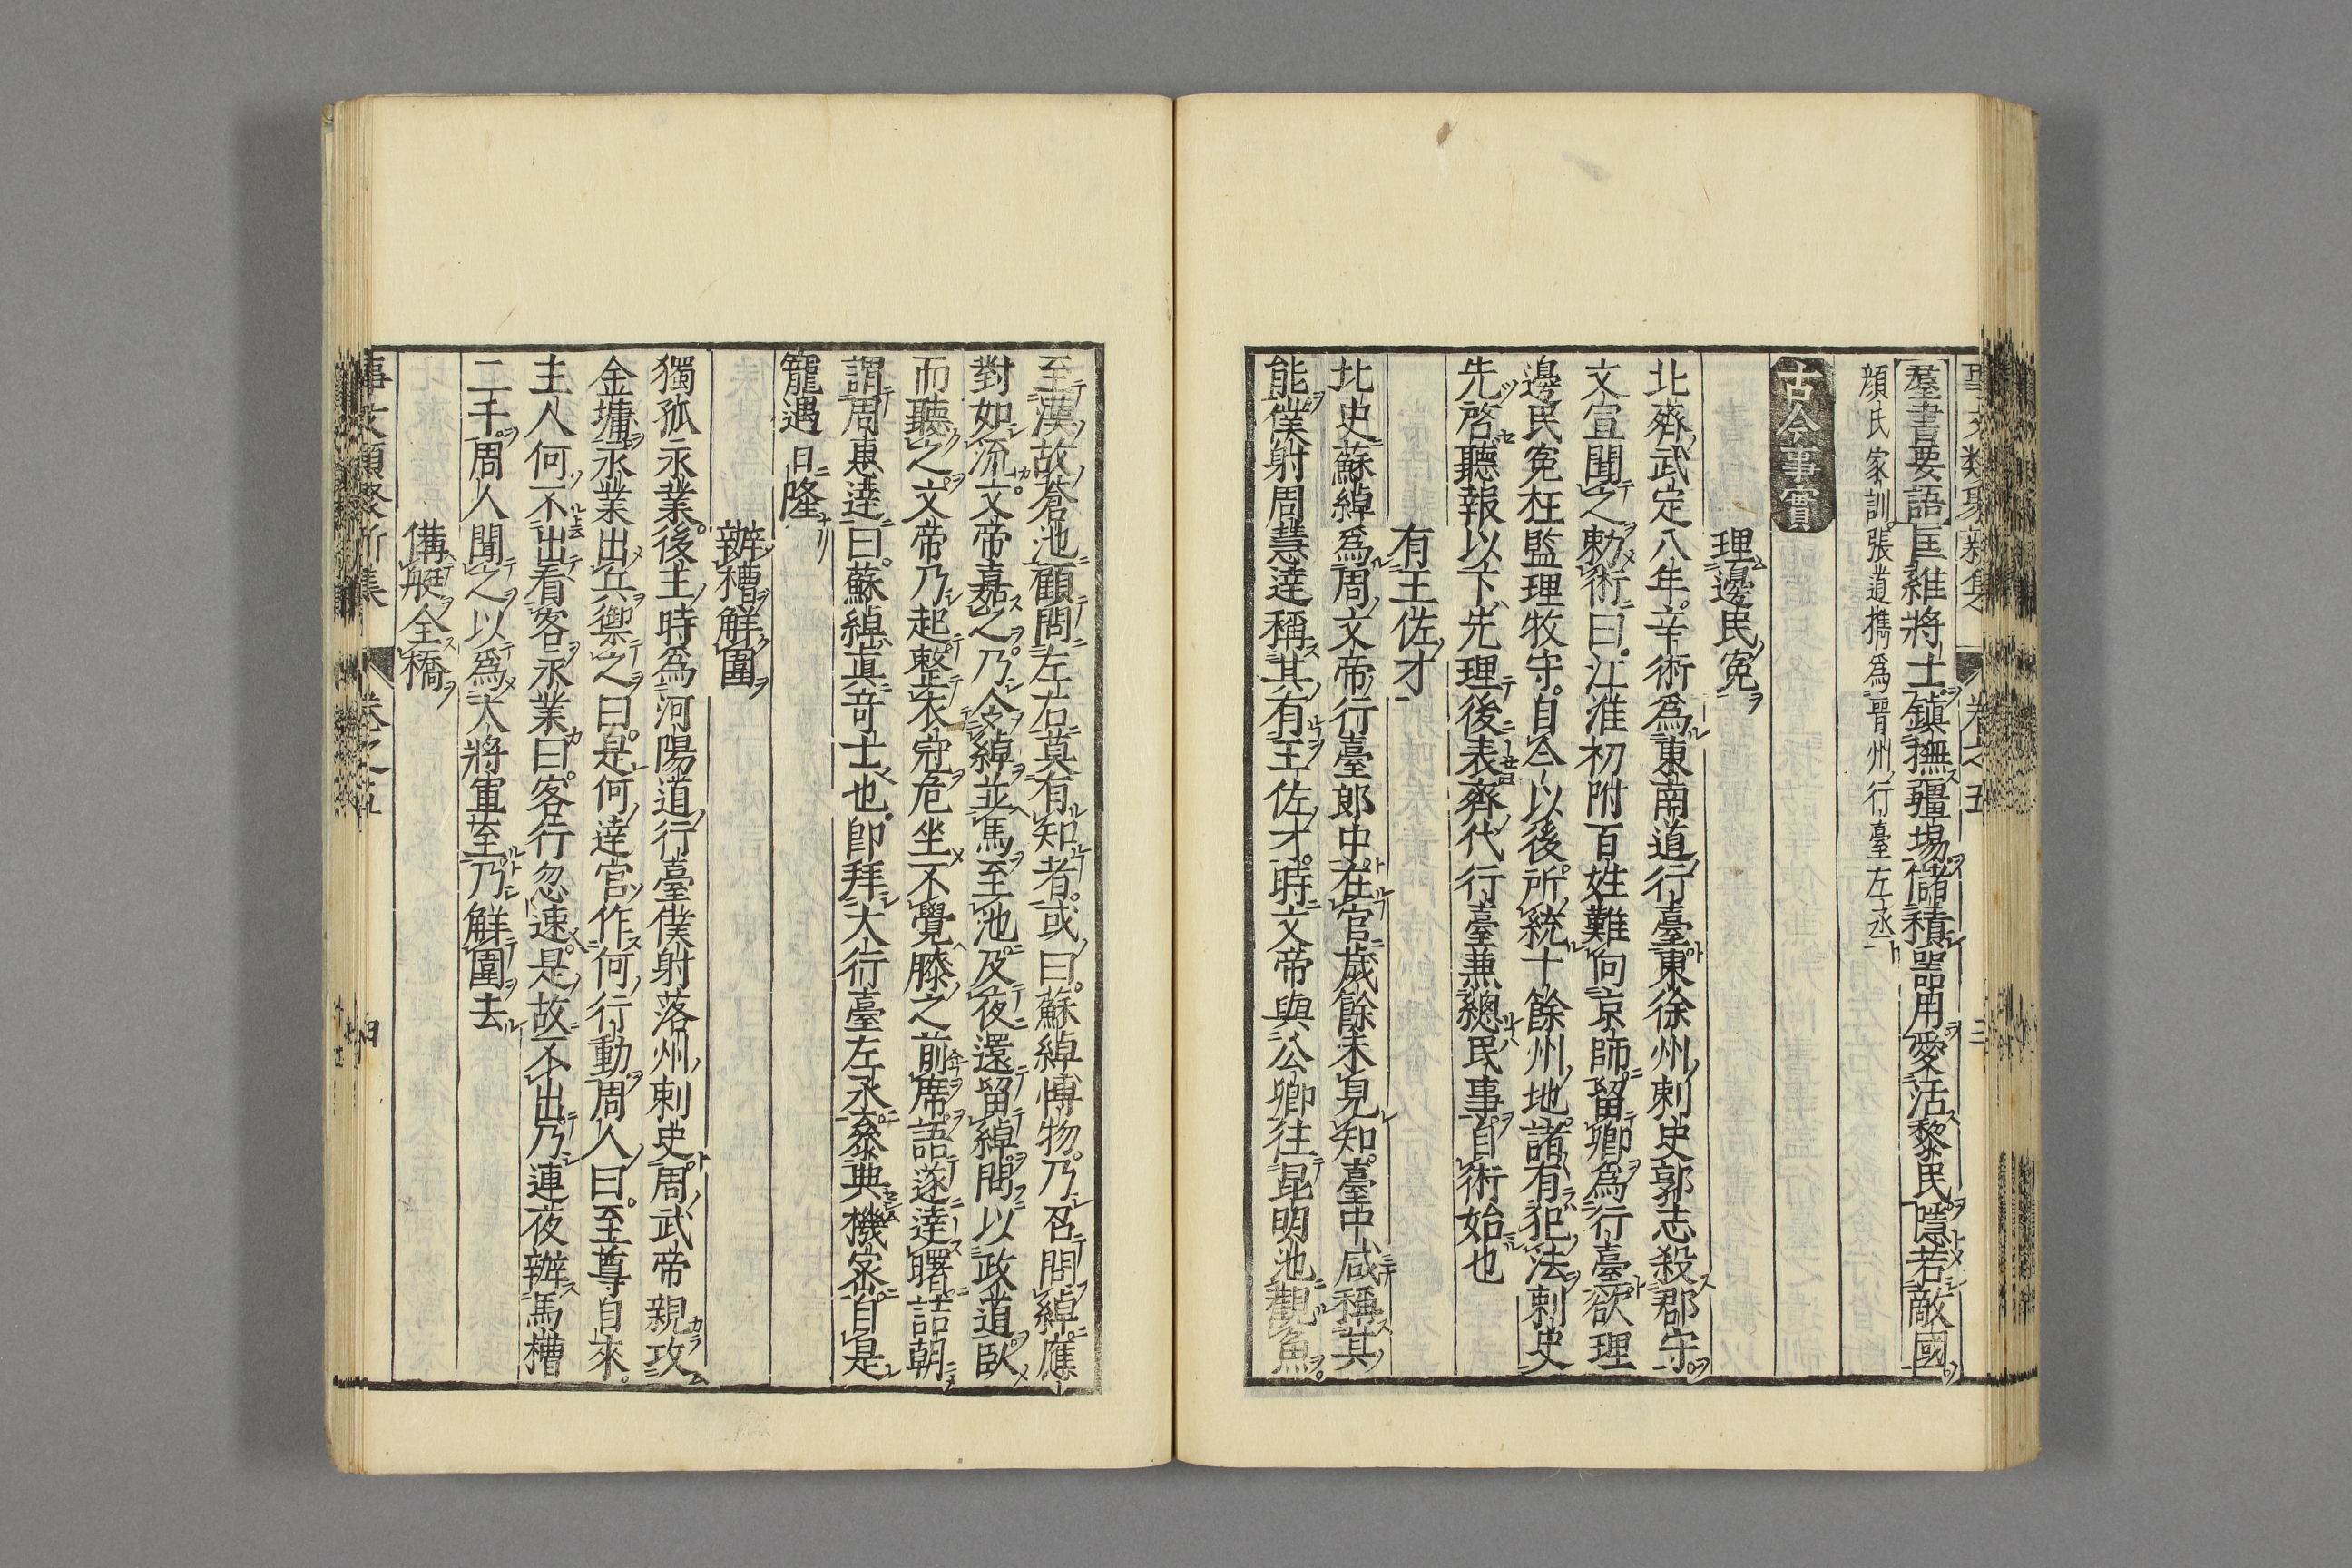 事文類聚新集 卷之五
羣書要語 匡維將士鎮撫疆場儲積器用愛活黎民隱若敵國
顔氏家訓張道㩦爲晉州行臺左丞
古今事實
理邊民冤
北齊武定八年辛術爲東南道行臺東徐州刺史郭志殺郡守
文宣聞之勅術曰江淮初附百姓難向京師留卿爲行臺欲理
邊民冤枉監理牧守自今以後所統十餘州地諸有犯法刺史
先啓聽報以下先理後表齊代行臺兼總民事自術始也
有王佐才
北史蘇綽爲周文帝行臺郎中在官歲餘未見知臺中咸稱其
能僕射周慧達稱其有王佐才時文帝與公卿往昆明池觀魚
至漢故蒼池顧問左右莫有知者或曰蘇綽博物乃召問綽應
對如流文帝嘉之乃令綽並馬至池及夜還留綽問以政道臥
而聽之文帝乃起整衣冠危坐不覺膝之前席語遂達曙詰朝
謂周惠達曰蘇綽真竒士也卽拜大行臺左丞叅典機密自是
寵遇日隆
辦槽解圍
獨孤永業後主時爲河陽道行臺僕射落州刺史周武帝親攻
金墉永業出兵禦之曰是何達官作何行動周人曰至尊自來
主人何不出看客永業曰客行忽速是故不出乃連夜辦馬槽
二千周人聞之以爲大將軍至乃解圍去
備艇全橋
事文類聚新集 卷之五